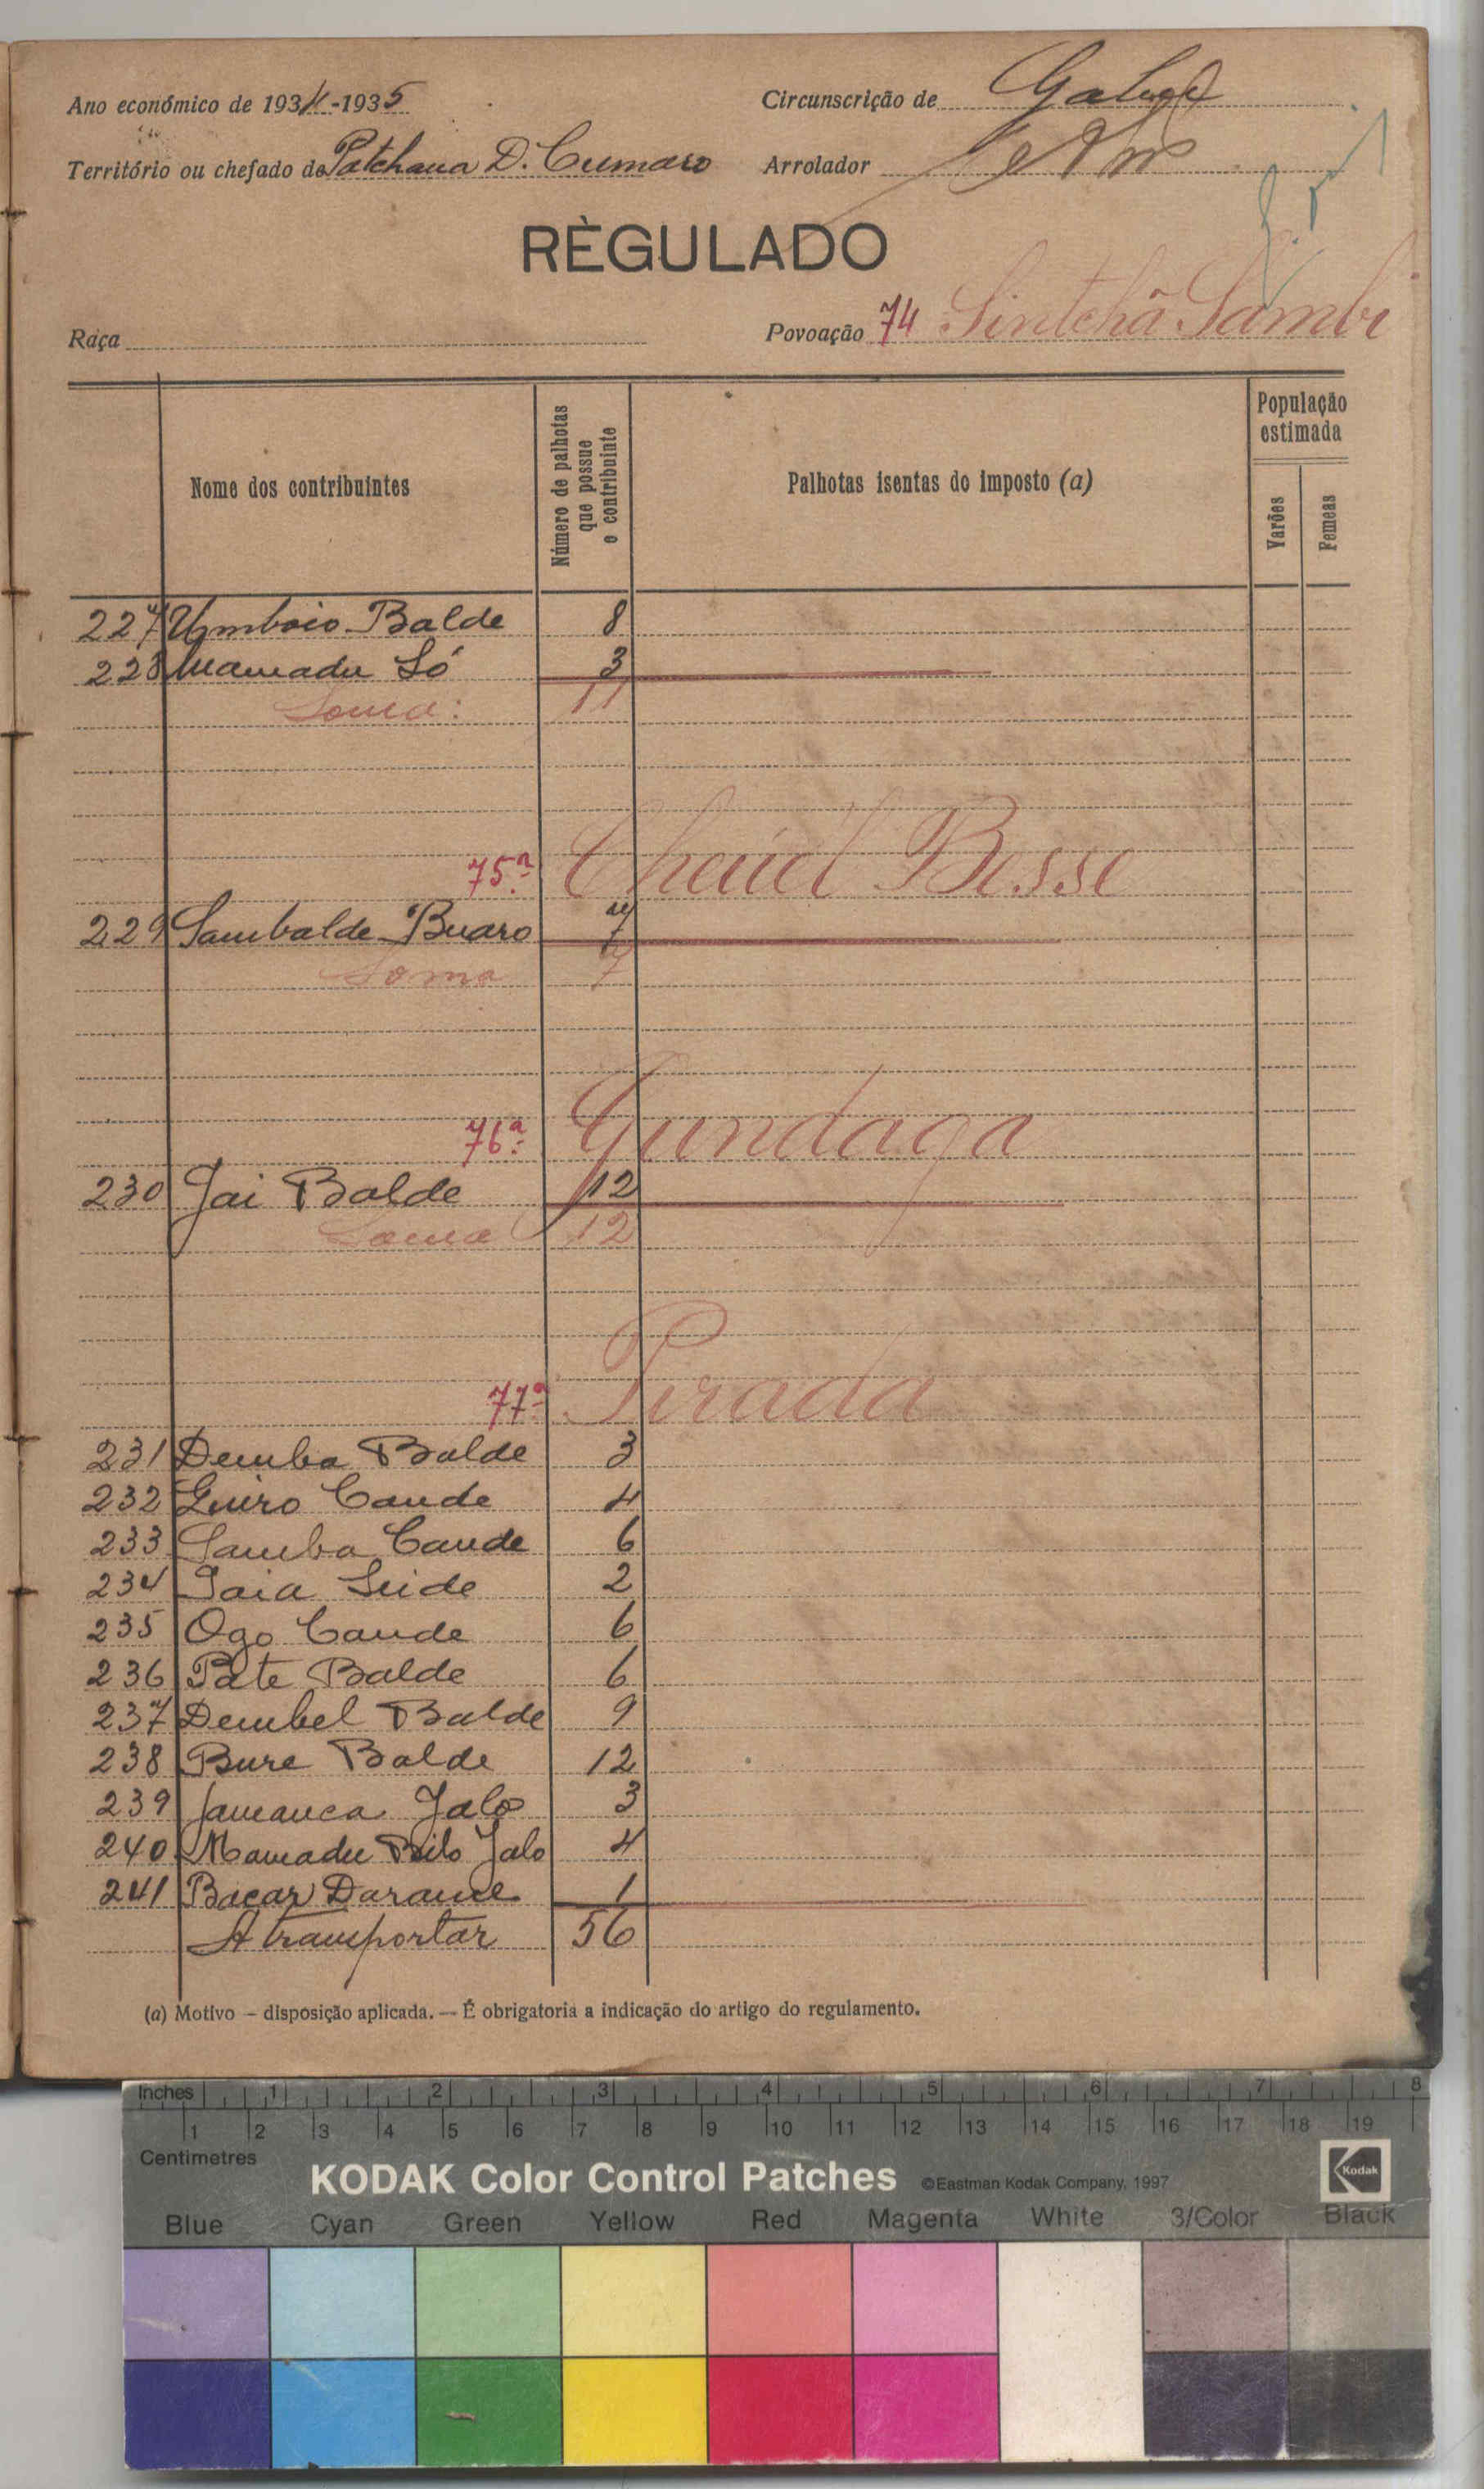 Ano económico de 1934-1935
Circunscrição de Gabú
Território ou chefado de Patchana D. Cumaro
Arrolador
RÈGULADO
Raça
Povoação 74 Sintchã Sambi
Nome dos contribuintes
Número de palhotas que possue o contribuinte
Palhotas isentas do imposto (a)
População estimada
Varões
Femeas
227 Umboio Balde 8
228 Mamadu Só 3
Soma: 11
75ª Cheuel Bosse
229 Sambalde Buaro 7
Soma 7
76ª Gundaga
230 Jai Balde 12
Soma 12
77ª Pirada
231 Demba Balde 3
232 Guiro Cande 4
233 Samba Cande 6
234 Saia Seide 2
235 Ogo Cande 6
236 Pate Balde 6
237 Dembel Balde 9
238 Bure Balde 12
239 Jamanca Jalo 3
240 Mamadu Bilo Jalo 4
241 Bacar Darame 1
A transportar 56
(a) Motivo — disposição aplicada. — É obrigatoria a indicação do artigo do regulamento.
Inches 1 2 3 4 5 6 7 8
1 2 3 4 5 6 7 8 9 10 11 12 13 14 15 16 17 18 19
Centimetres
KODAK Color Control Patches ©Eastman Kodak Company, 1997 Kodak
Blue Cyan Green Yellow Red Magenta White 3/Color Black